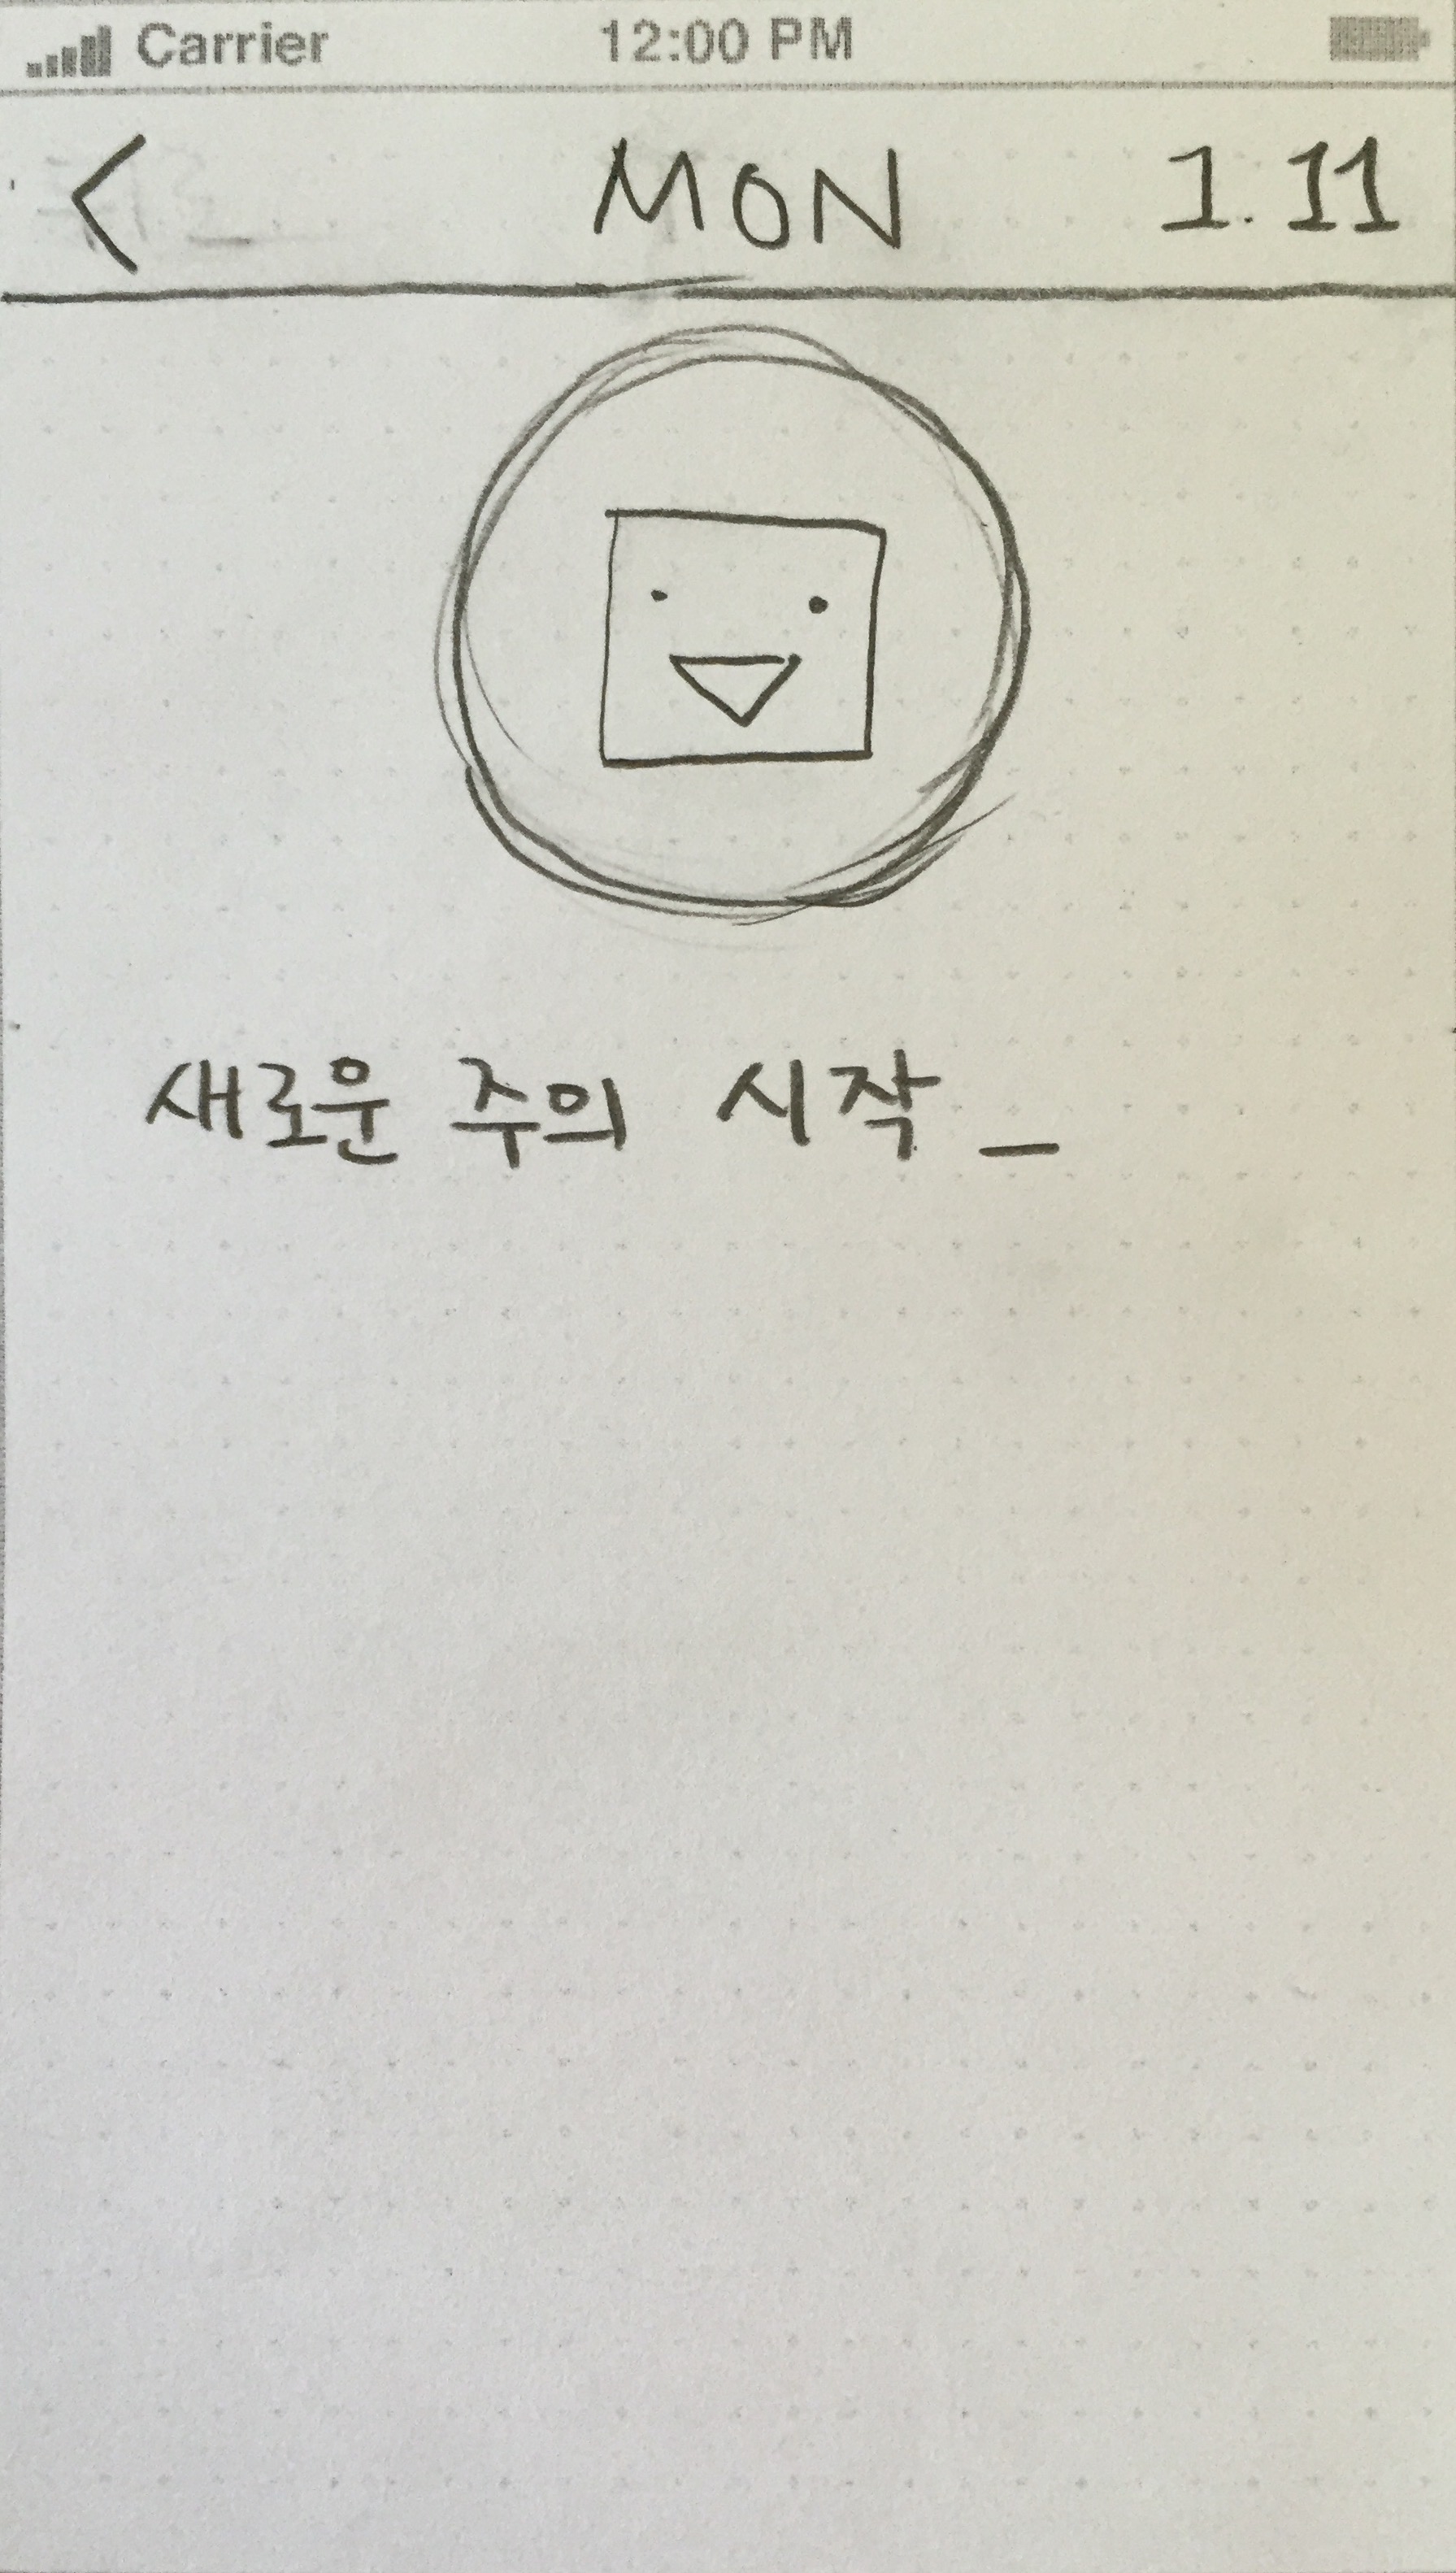 Carrier 12:00 PM
< MON 1.11
새로운 주의 시작 _